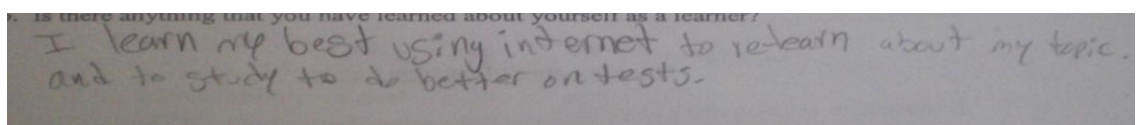 . Is there anything that you have learned about yourself as a learner?
I learn my best using internet to relearn about my topic.
and to study to do better on tests.